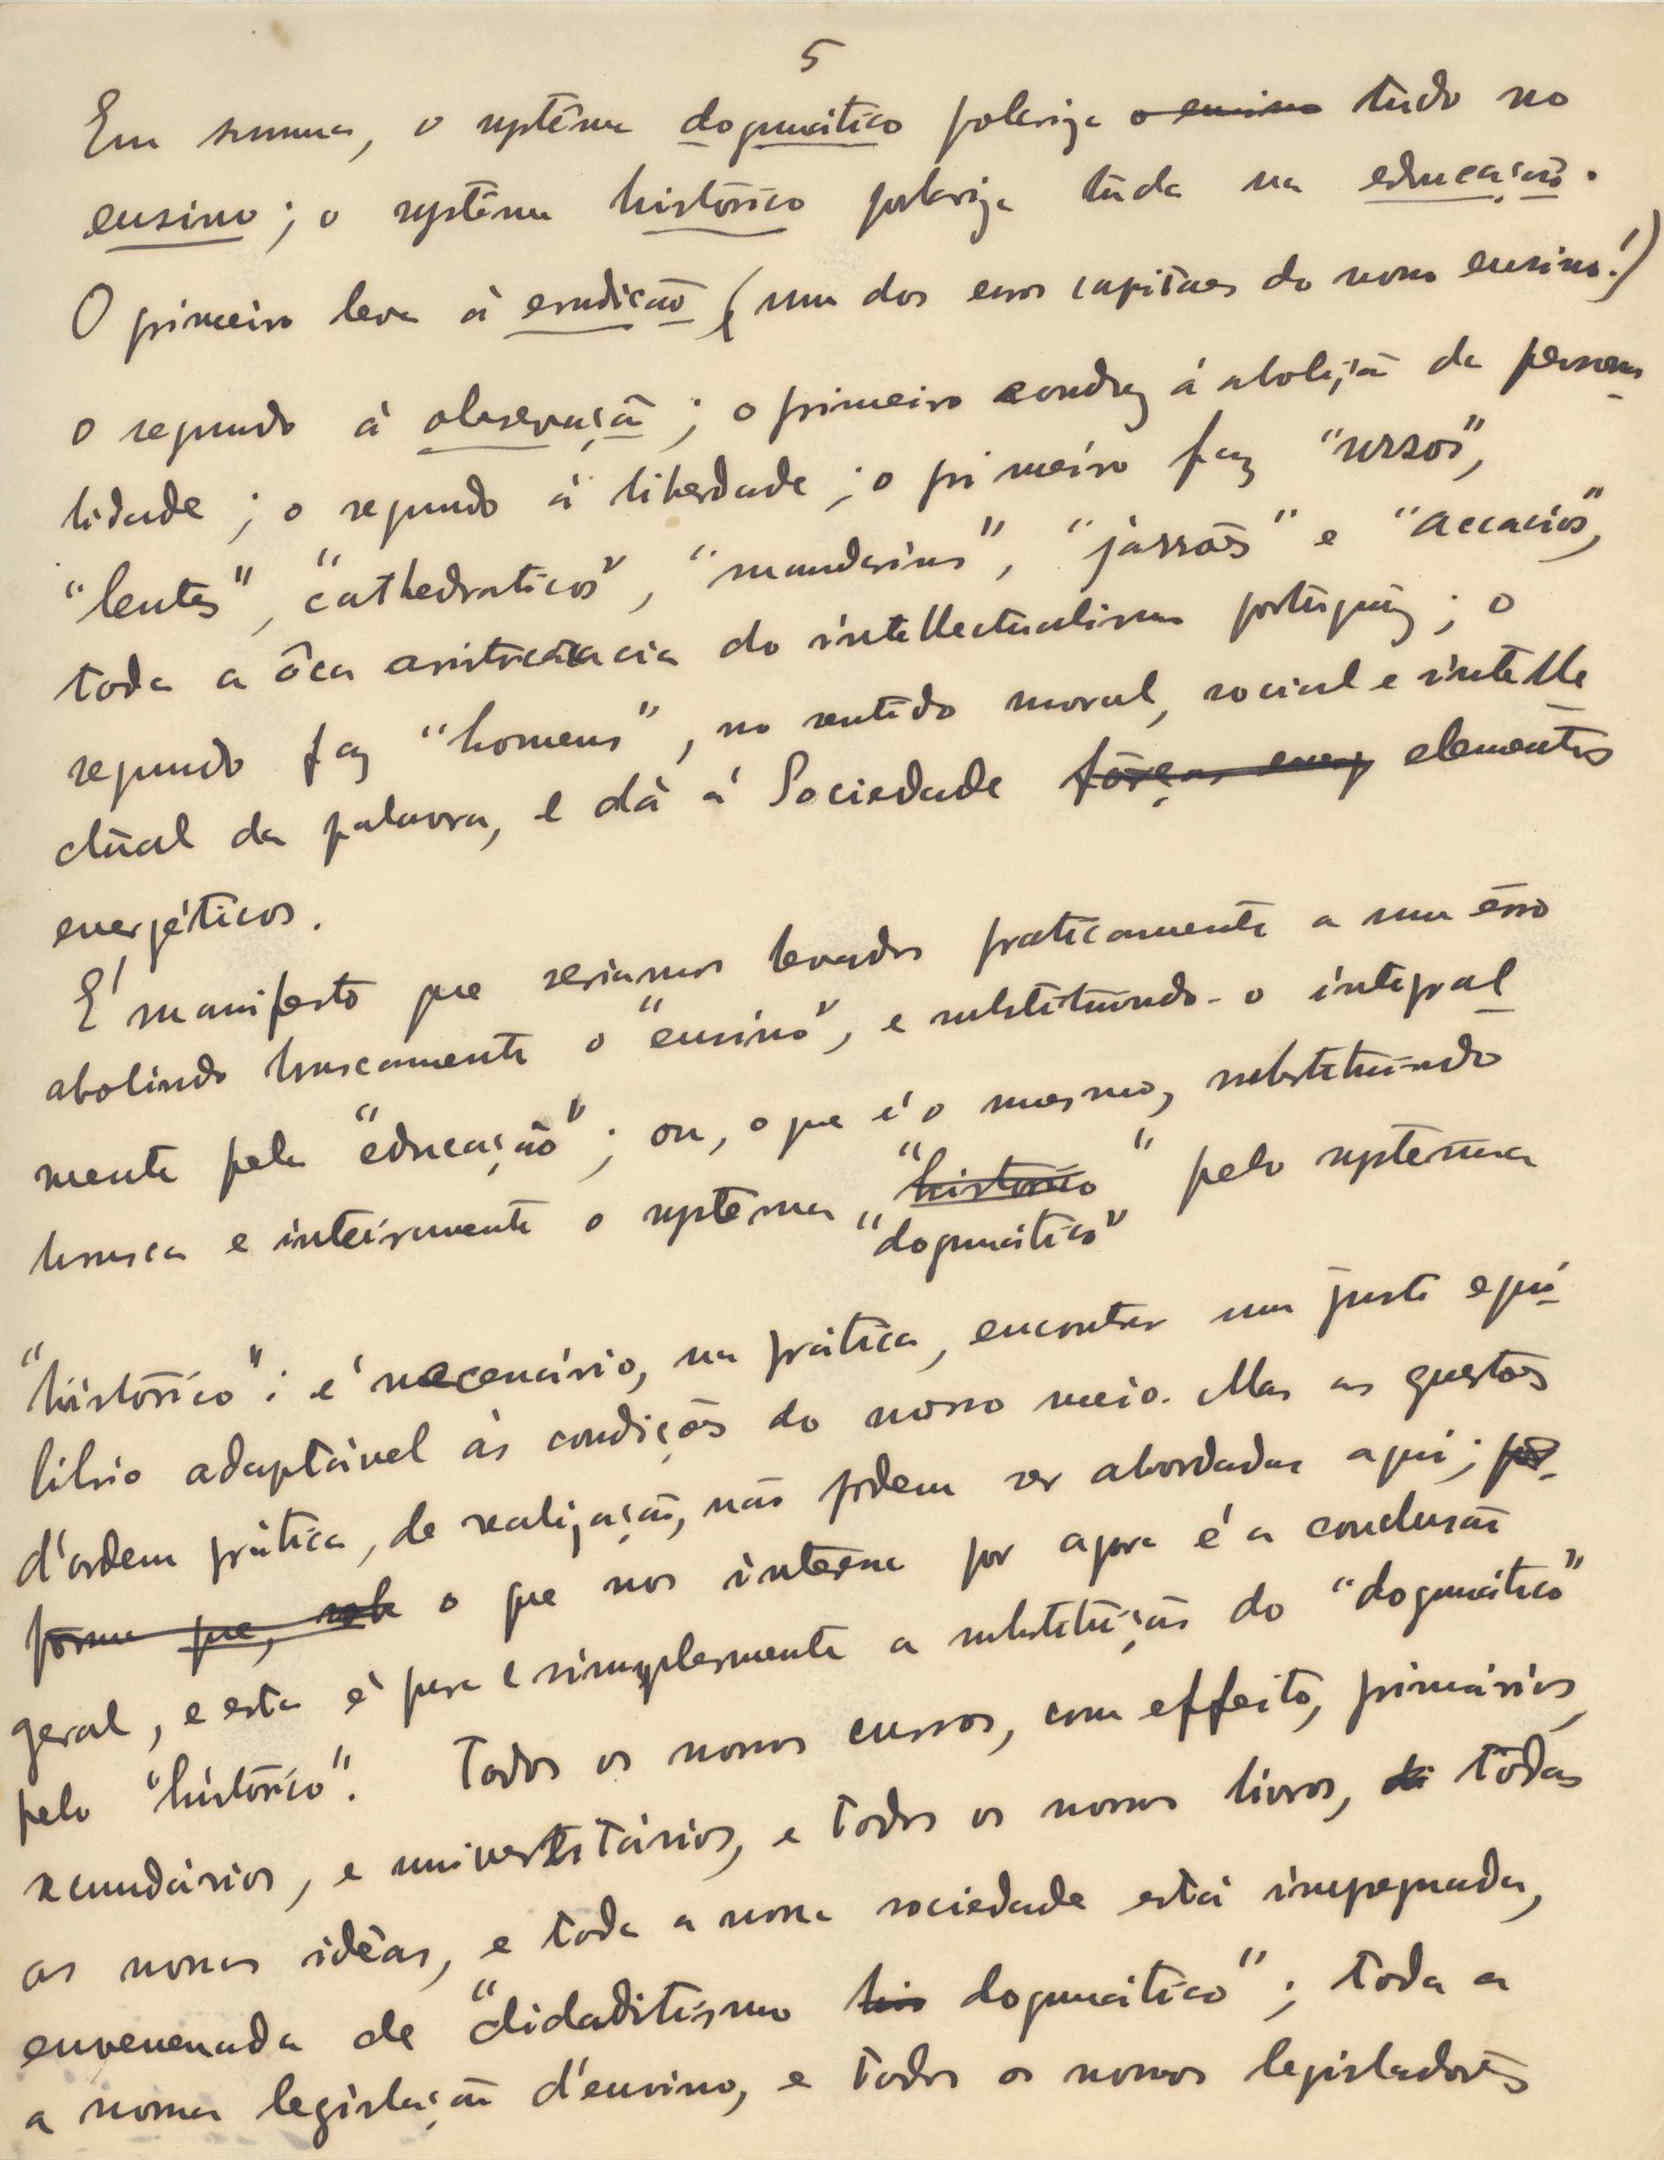 5
Em summa, o systêma dogmático polariza o ensino tudo no
ensino; o systêma histórico polariza tudo na educação.
O primeiro leva á erudicão (um dos erros capitaes do nosso ensino!)
o segundo á observação; o primeiro conduz á abolição da persona-
lidade; o segundo á liberdade; o primeiro faz "ursos",
"lentes", "cathedraticos", "mandarins", "jarrões" e "accacios",
toda a ôca aristocracia do intellectualismo português; o
segundo faz "homens", no sentido moral, social e intelle-
ctual da palavra, e dá á Sociedade fôrças energ elementos
energéticos.
É manifesto que seriamos levados praticamente a um êrro
abolindo bruscamente o "ensino", e substituindo-o integral-
mente pela "educação"; ou, o que é o mesmo, substituindo
brusca e inteiramente o systema "histórico" pelo systema
"dogmático"
"histórico": é necessário, na prática, encontrar um justo equi-
líbrio adaptável ás condições do nosso meio. Mas as questões
d'ordem prática, de realização, não pódem ser abordadas aqui; por-
forma que, sob o que nos interessa por agora é a conclusão
geral, e esta é pura e simplesmente a substituição do "dogmático"
pelo "histórico". Todos os nossos cursos, com effeito, primários,
secundários, e universitários, e todos os nossos livros, di tôdas
as nossas idêas, e toda a nossa sociedade está impregnada,
envenenada de "didactismo his dogmático"; toda a
a nossa legislação d'ensino, e todos os nossos legisladores